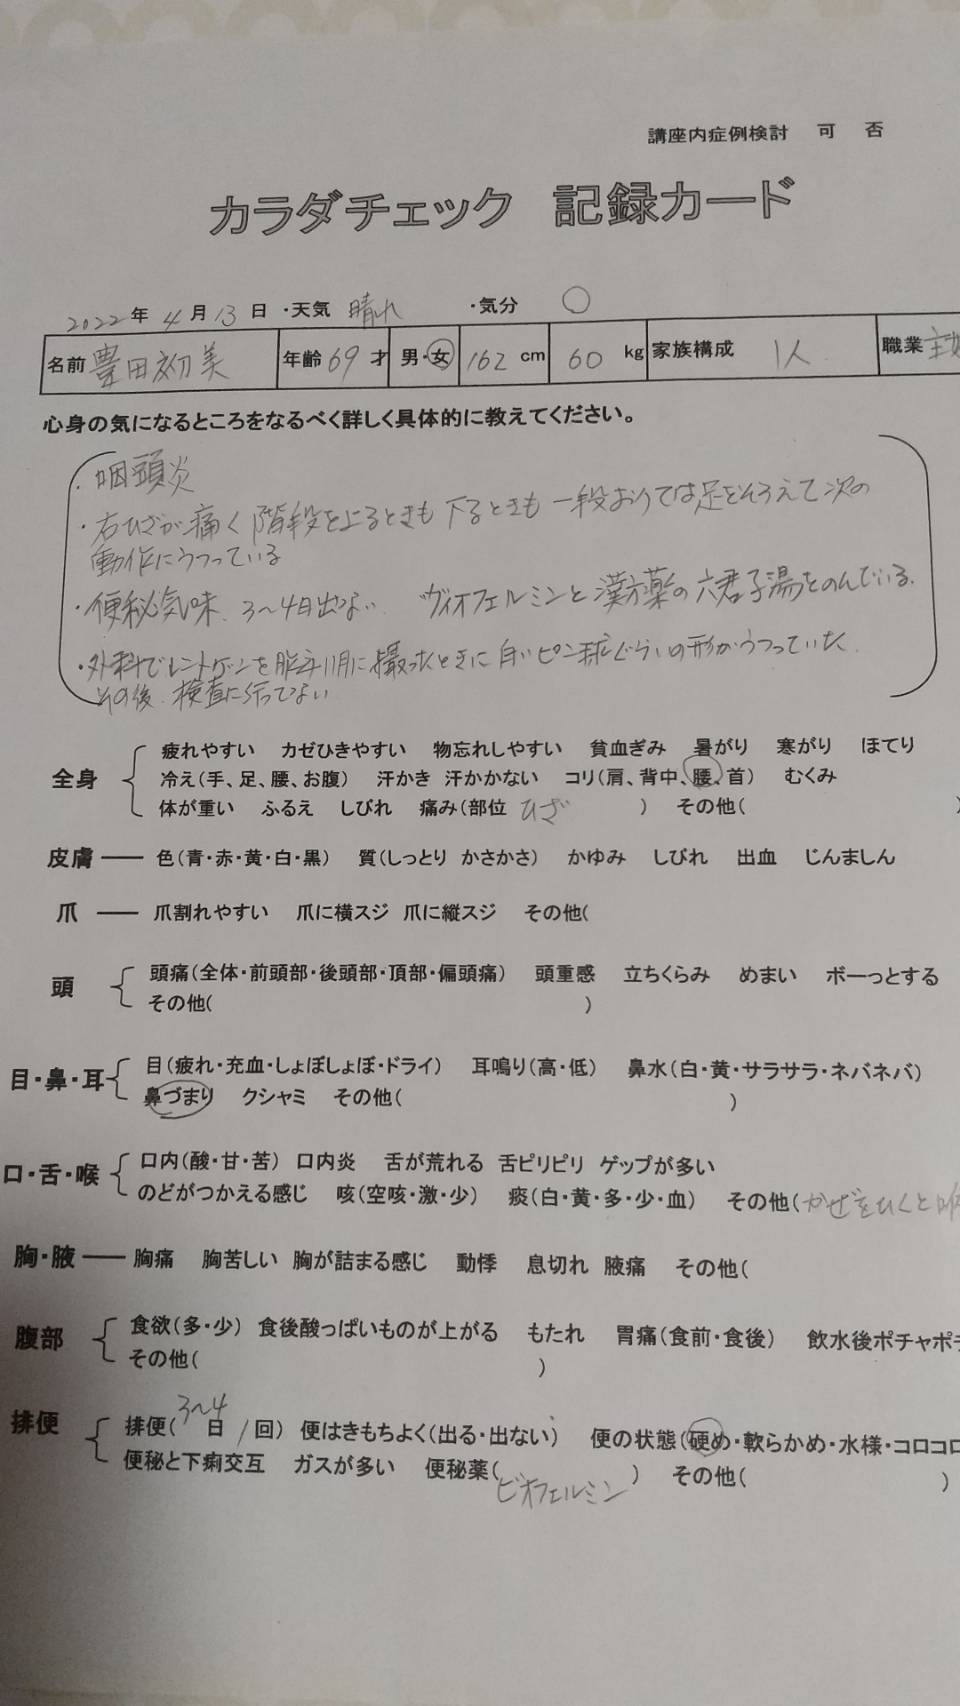 講座内症例検討 可 否
カラダチェック 記録カード
2022年4月13日 ・天気 晴れ ・気分 ○
名前 豊田初美 年齢69才 男・女 162cm 60kg 家族構成 1人 職業 主
心身の気になるところをなるべく詳しく具体的に教えてください。
・咽頭炎
・右ひざが痛く階段を上るときも下るときも一段おりては足をそろえて次の
動作にうつっている
・便秘気味、3〜4日出ない ヴィオフェルミンと漢方薬の六君子湯をのんでいる。
・外科でレントゲンを 撮ったときに白いピン球ぐらいの形がうつっていた。
その後、検査に行ってない
全身 疲れやすい カゼひきやすい 物忘れしやすい 貧血ぎみ 暑がり 寒がり ほてり
冷え(手、足、腰、お腹) 汗かき 汗かかない コリ(肩、背中、腰、首) むくみ
体が重い ふるえ しびれ 痛み(部位 ひざ ) その他( )
皮膚 色(青・赤・黄・白・黒) 質(しっとり かさかさ) かゆみ しびれ 出血 じんましん
爪 爪割れやすい 爪に横スジ 爪に縦スジ その他(
頭 頭痛(全体・前頭部・後頭部・頂部・偏頭痛) 頭重感 立ちくらみ めまい ボーっとする
その他( )
目・鼻・耳 目(疲れ・充血・しょぼしょぼ・ドライ) 耳鳴り(高・低) 鼻水(白・黄・サラサラ・ネバネバ)
鼻づまり クシャミ その他( )
口・舌・喉 口内(酸・甘・苦) 口内炎 舌が荒れる 舌ピリピリ ゲップが多い
のどがつかえる感じ 咳(空咳・激・少) 痰(白・黄・多・少・血) その他(かぜをひくと
胸・腋 胸痛 胸苦しい 胸が詰まる感じ 動悸 息切れ 腋痛 その他(
腹部 食欲(多・少) 食後酸っぱいものが上がる もたれ 胃痛(食前・食後) 飲水後ポチャポ
その他( )
排便 排便(3〜4日/回) 便はきもちよく(出る・出ない) 便の状態(硬め・軟らかめ・水様・コロコロ
便秘と下痢交互 ガスが多い 便秘薬(ビオフェルミン) その他( )